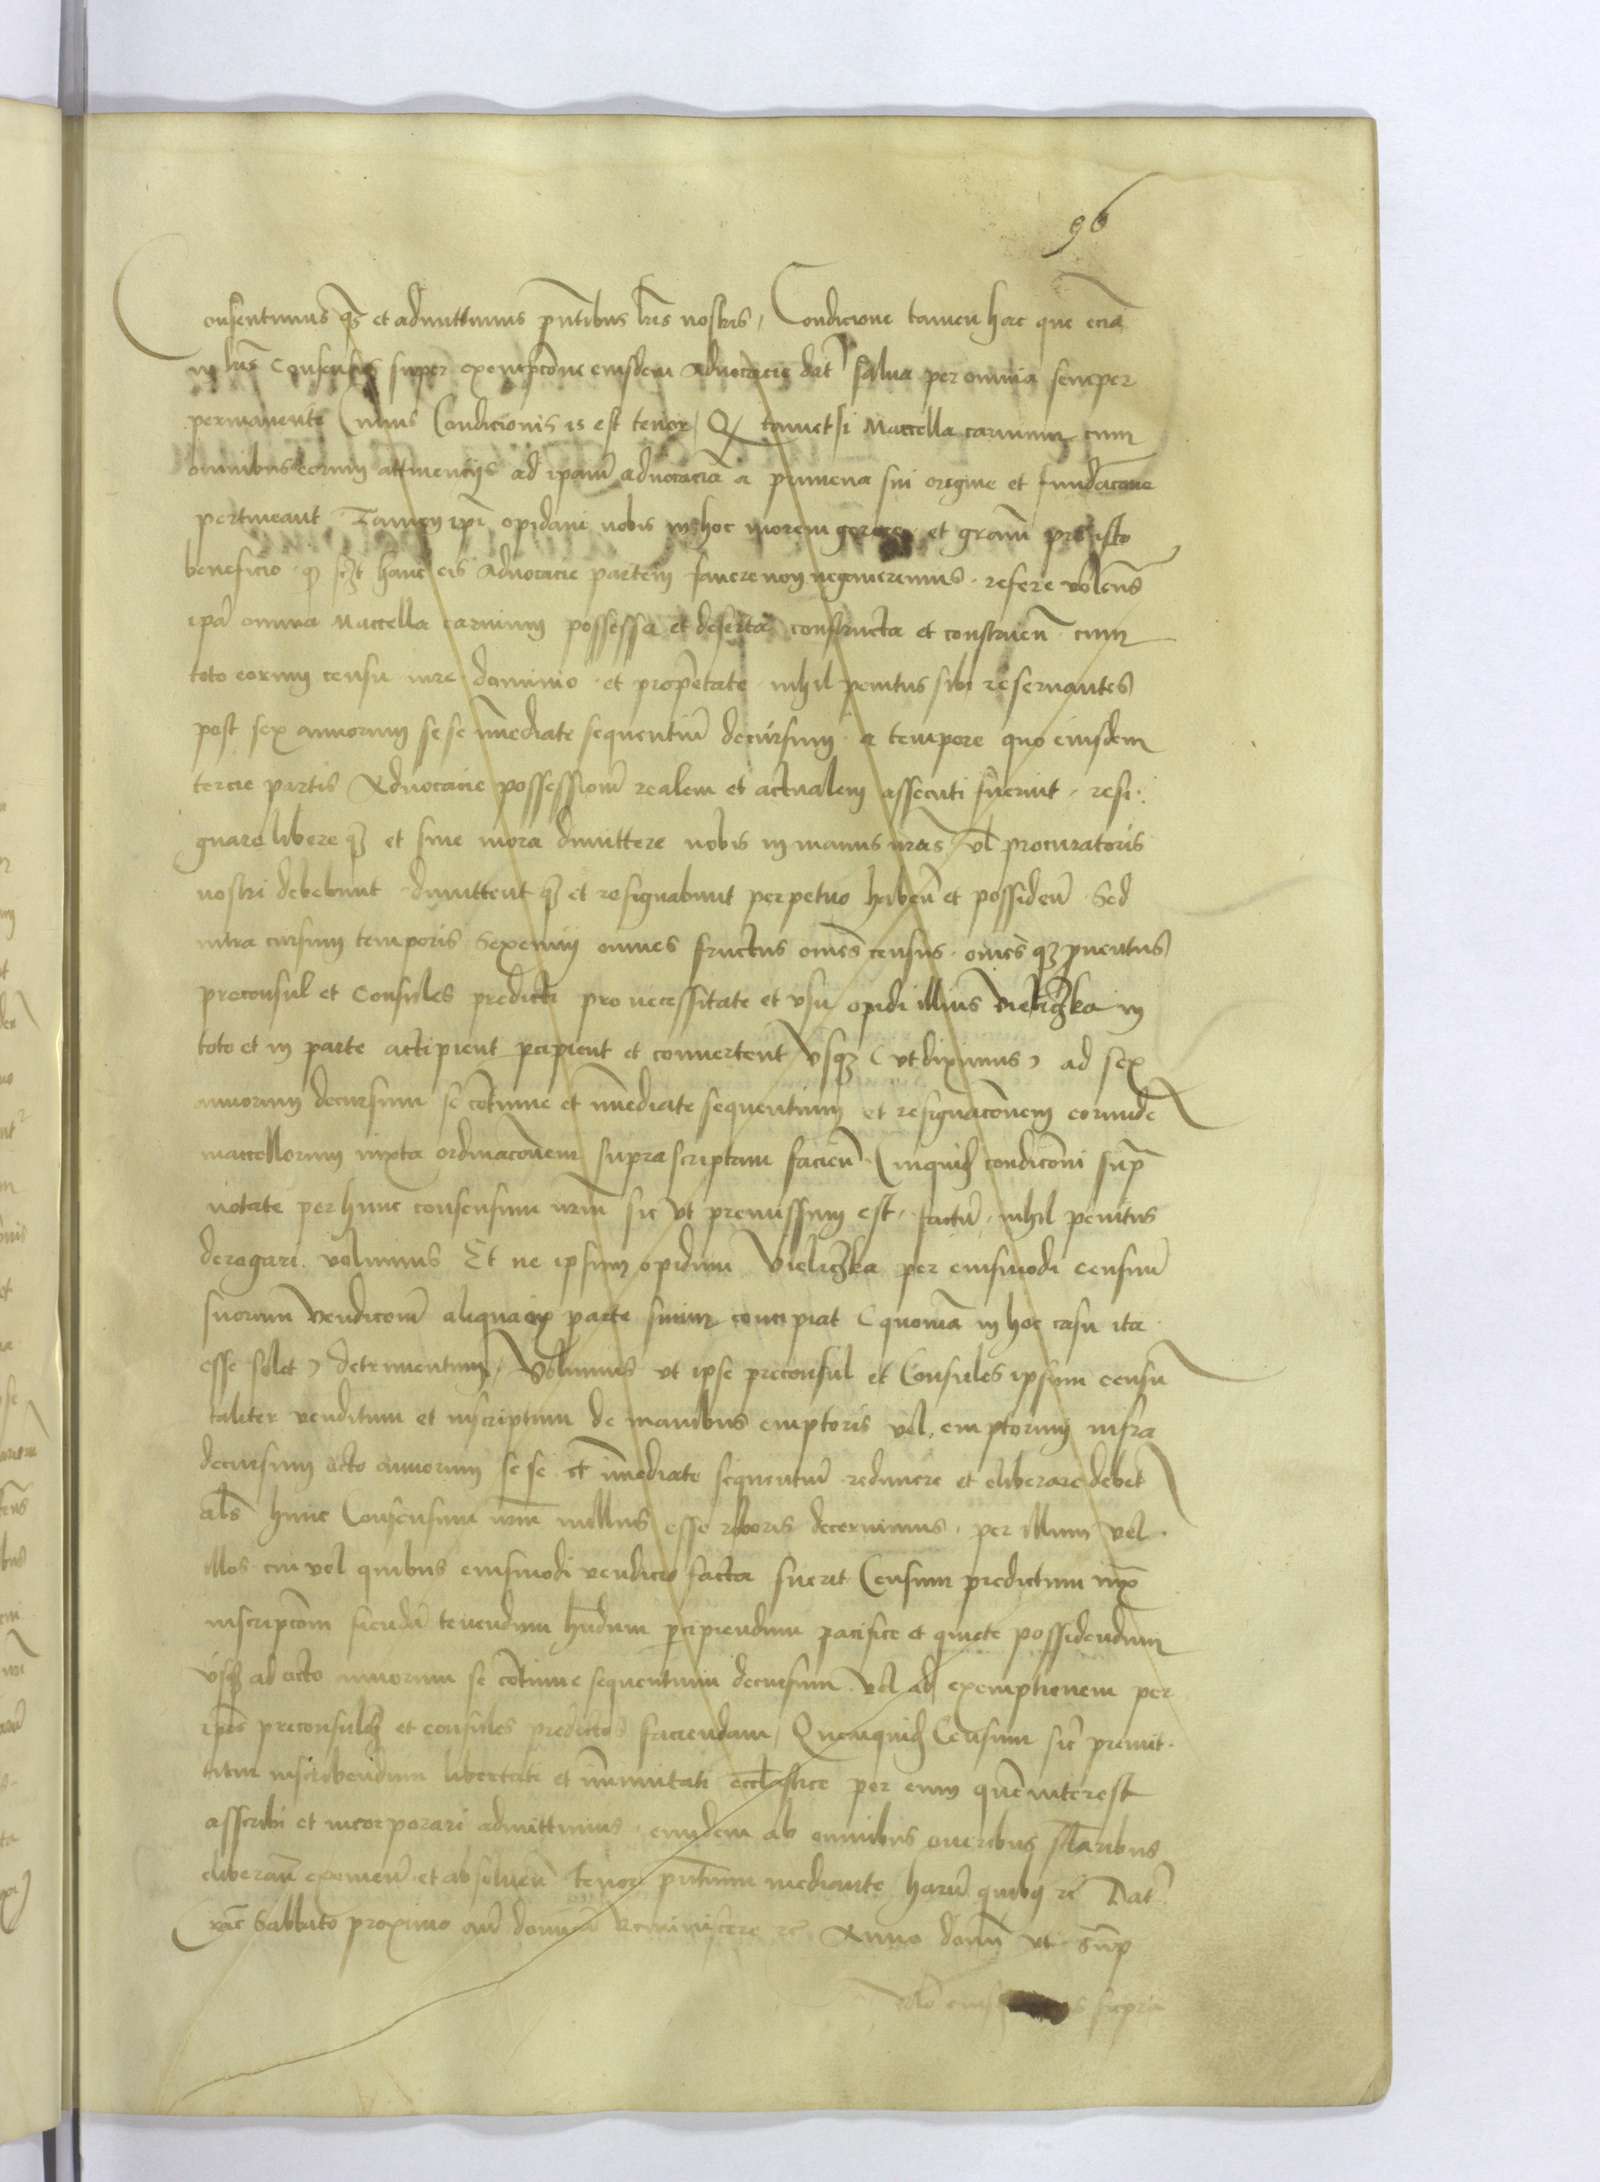 96
Consentimus q3 et admittimus pntibus lris nostris, Condicione tamen hac que ecia
in lris Consensus super exempcione eiusdem Advocacie dat salva per omnia semper
permanente Cuius Condicionis is est tenor, Q tametsi Maccella carnium cum
omnibus eorum attinenciis ad ipam advocacia a primeva sui origine et fundacione
pertineant Tamen ipi opidani nobis in hoc morem gerere et gram pro isto
beneficio q scz hanc eis Advocacie partem favere non negaverimus refere volens
ipa omnia Maccella carnium possessa et deserta constructa et construen cum
toto eorum censu iure dominio et propetate nihil penitus sibi reservantes
post sex annorum se se imediate sequentium decursum a tempore quo eiusdem
tercie partis Advocacie possessionem realem et actualem assecuti fuerint resi
gnare libere q3 et sine mora dimittere nobis in manus nras vl procuratoris
nostri debebunt dimittent q3 et resignabunt perpetuo haben et possiden Sed
intra cursum temporis Sexennii omnes fructus omes census omes q3 pventus
preconsul et Consules predicti pro necessitate et usu opidi illius Vieliczka in
toto et in parte accipient pcipient et convertent Vsq3 (ut diximus) ad sex
annorum decursum se cotinue et imediate sequentium et resignacionem eorunde
maccellorum iuxta ordinacionem suprascriptam facien Cuiquid condicioni sup
notate per hunc consensum nrm sic ut premissum est factum nihil penitus
derogari volumus Et ne ipsum opidum Vieliczka per eiusmodi censum
suorum vendicionem aliqua ex parte suum concipiat (quoniam in hoc casu ita
esse solet) detrimentum, Volumus ut ipse preconsul et Consules ipsum censu
taliter venditum et inscriptum de manibus emptoris vel emptorum infra
decursum octo annorum se se et imediate sequentium redimere et eliberare debet
als hunc Consensum nrm nullius esse roboris decernimus per illum vel
illos cui vel quibus eiusmodi vendicio facta fuerit Censum predictum iux
inscripcionem fienda tenendum hndum pcipiendum pacifice et quiete possidendum
Vsq3 ad octo annorum se cotinue sequentium decursum vel ad exemptionem per
ipos preconsule et consules predictos faciendam, Quemquid Censum sic premit
titur inscribendum libertati et imunitati ecclastice per eum que interest
asscribi et incorporari admittimus eundem ab omnibus oneribus sclaribus
eliberan eximen et absolven tenore pntium mediante harum quibus rc Dat
Crac Sabbato proximo an domica Reminiscere rc Anno domi ut sup
supra